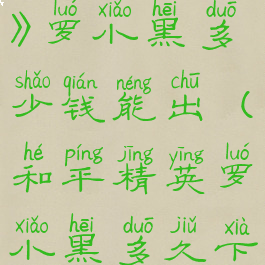 luó xiǎo hēi duō
》罗小黑多
shǎo qián néng chū
少钱能出（
hé píng jīng yīng luó
和平精英罗
xiǎo hēi duō jiǔ xià
小黑多久下